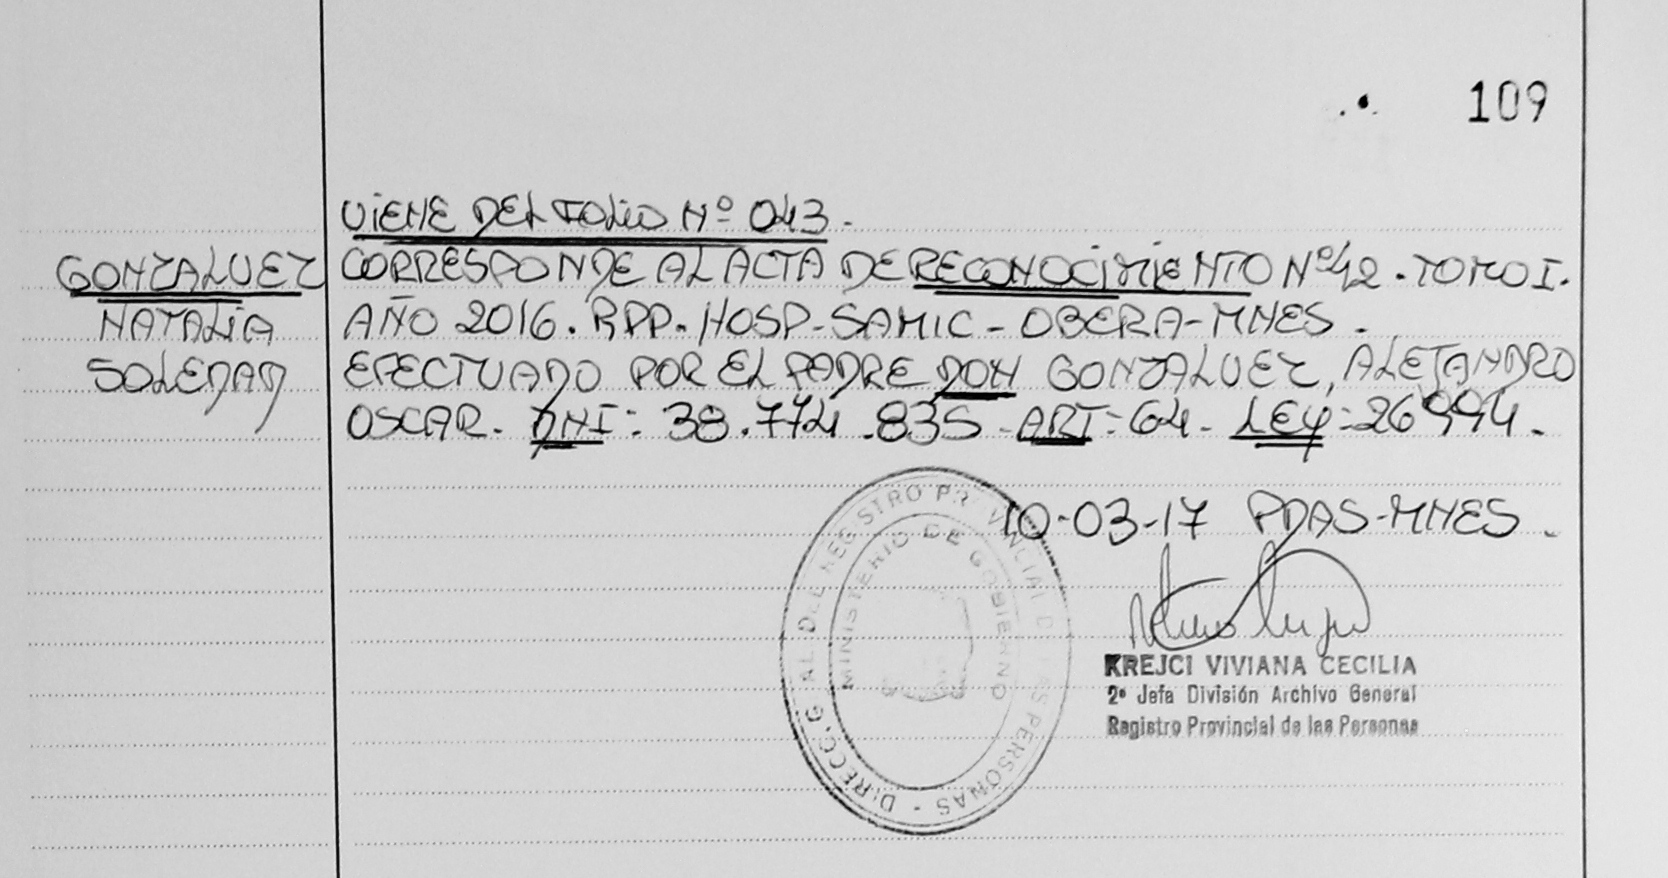 109
VIENE DEL FOLIO Nº 043.
GONZALVEZ
NATALIA
SOLEDAD
CORRESPONDE AL ACTA DE RECONOCIMIENTO Nº42. TOMO I.
AÑO 2016. RPP. HOSP-SAMIC-OBERA-MNES.
EFECTUADO POR EL PADRE DON GONZALVEZ, ALEJANDRO
OSCAR. DNI: 38.774.835-ART:64- LEY:26994.
10-03-17 PDAS-MNES.
DIRECC. GRAL. DEL REGISTRO PROVINCIAL DE LAS PERSONAS -
MINISTERIO DE GOBIERNO
KREJCI VIVIANA CECILIA
2º Jefa División Archivo General
Registro Provincial de las Personas